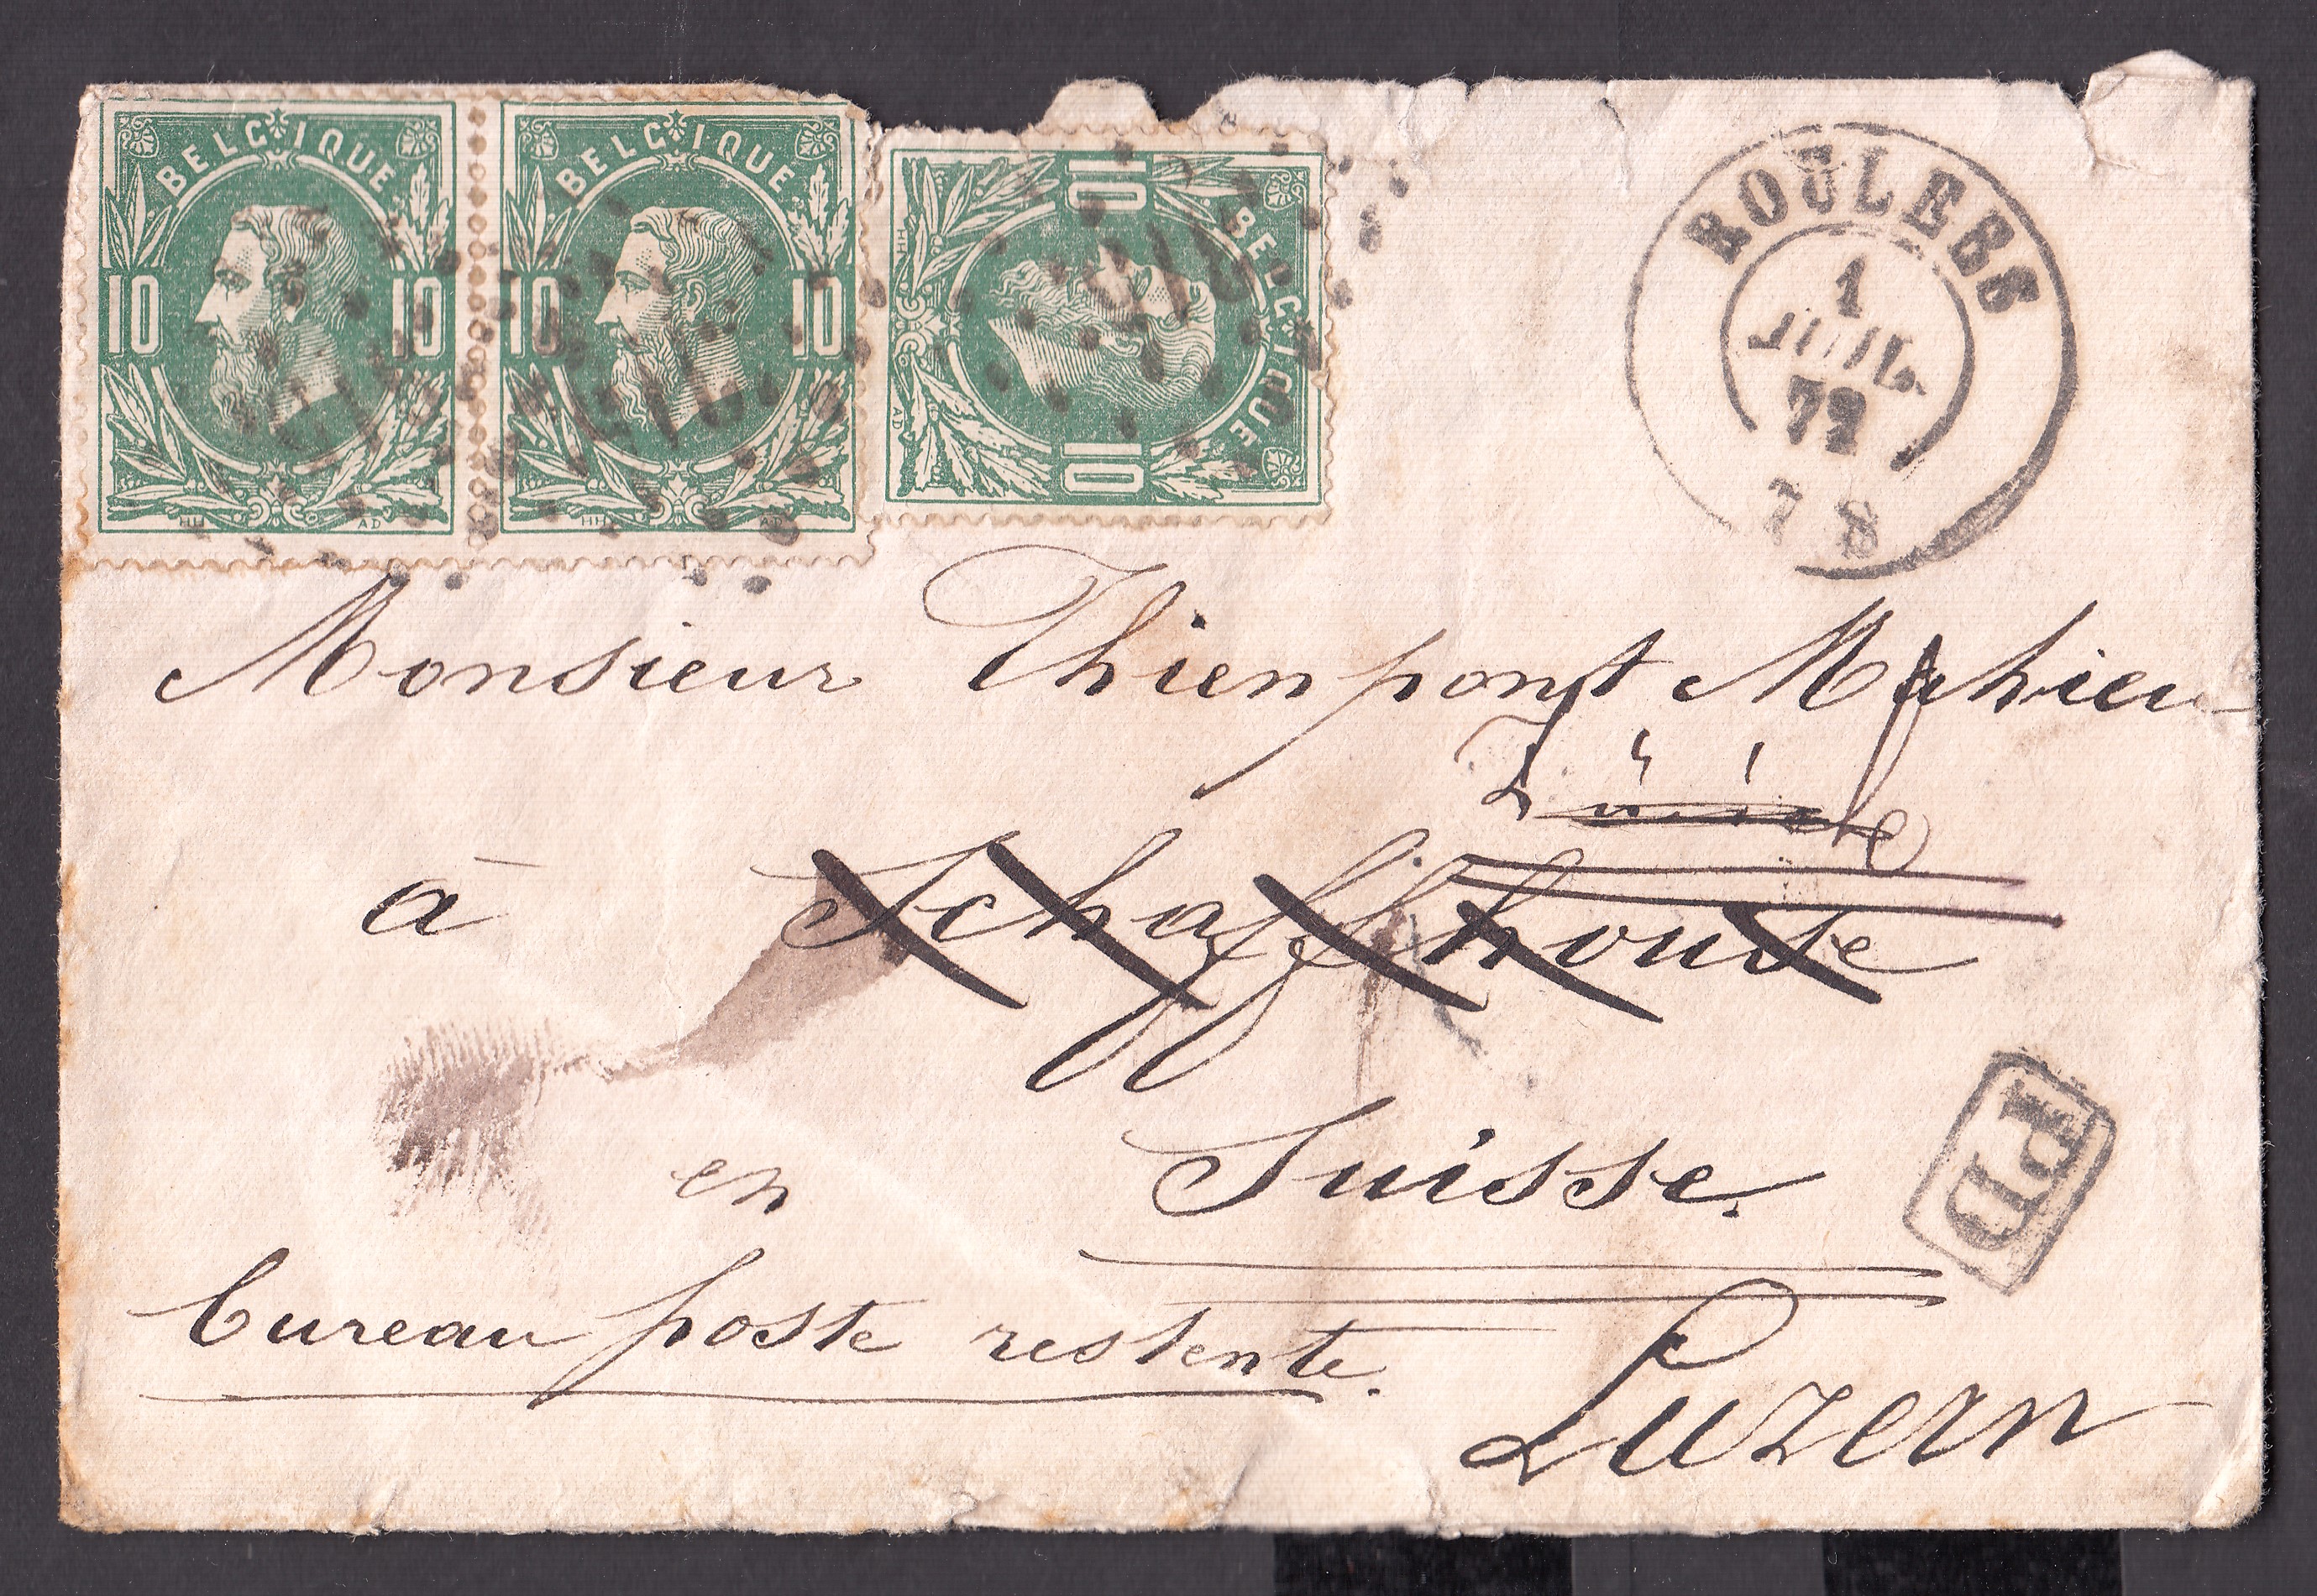 BELGIQUE BELGIQUE BELGIQUE
10 10 10 10 10 10
HH AD HH AD HH AD
ROULERS
1
JUIL.
72
7 8
Monsieur Thienpont Mahieu
Zürich
à Schaffhouse
en Suisse.
PD
bureau poste restente.
Luzern